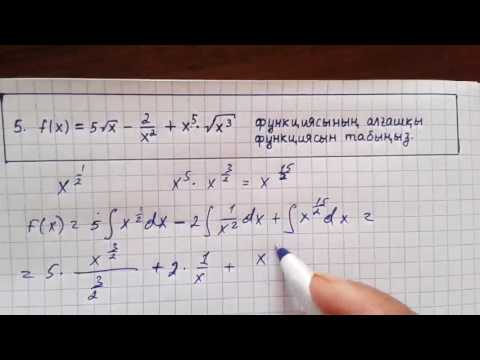 5. f(x) = 5√x − 2/x² + x⁵·√x³ функциясының алғашқы
функциясын табыңыз.
x^(1/2) x⁵ · x^(3/2) = x^(15/2)
F(x) = 5∫x^(1/2)dx − 2∫1/x² dx + ∫x^(15/2)dx =
= 5 · x^(3/2)/(3/2) + 2 · 1/x + x